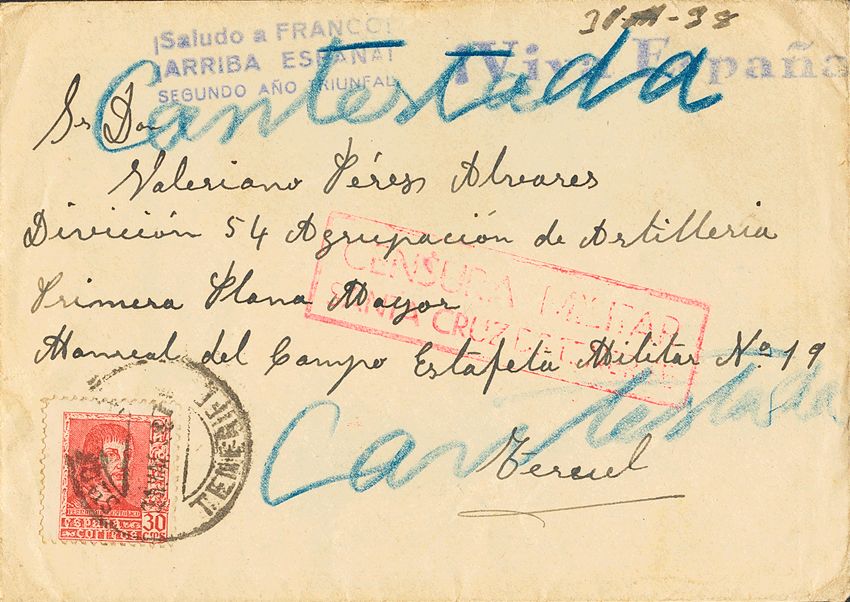 ¡Saludo a FRANCO!
¡ARRIBA ESPAÑA!
SEGUNDO AÑO TRIUNFAL
-38
¡Viva España
Cantestada
Sr Don
Valeriano Pérez Alvares
División 54 Agrupación de Artilleria
Primera Plana Mayor
CENSURA MILITAR
SANTA CRUZ DE TENERIFE
Monreal del Campo Estafeta Militar Nº 19
Cantestada
Teruel
TENERIFE
ESPAÑA
CORREOS
30
CTS